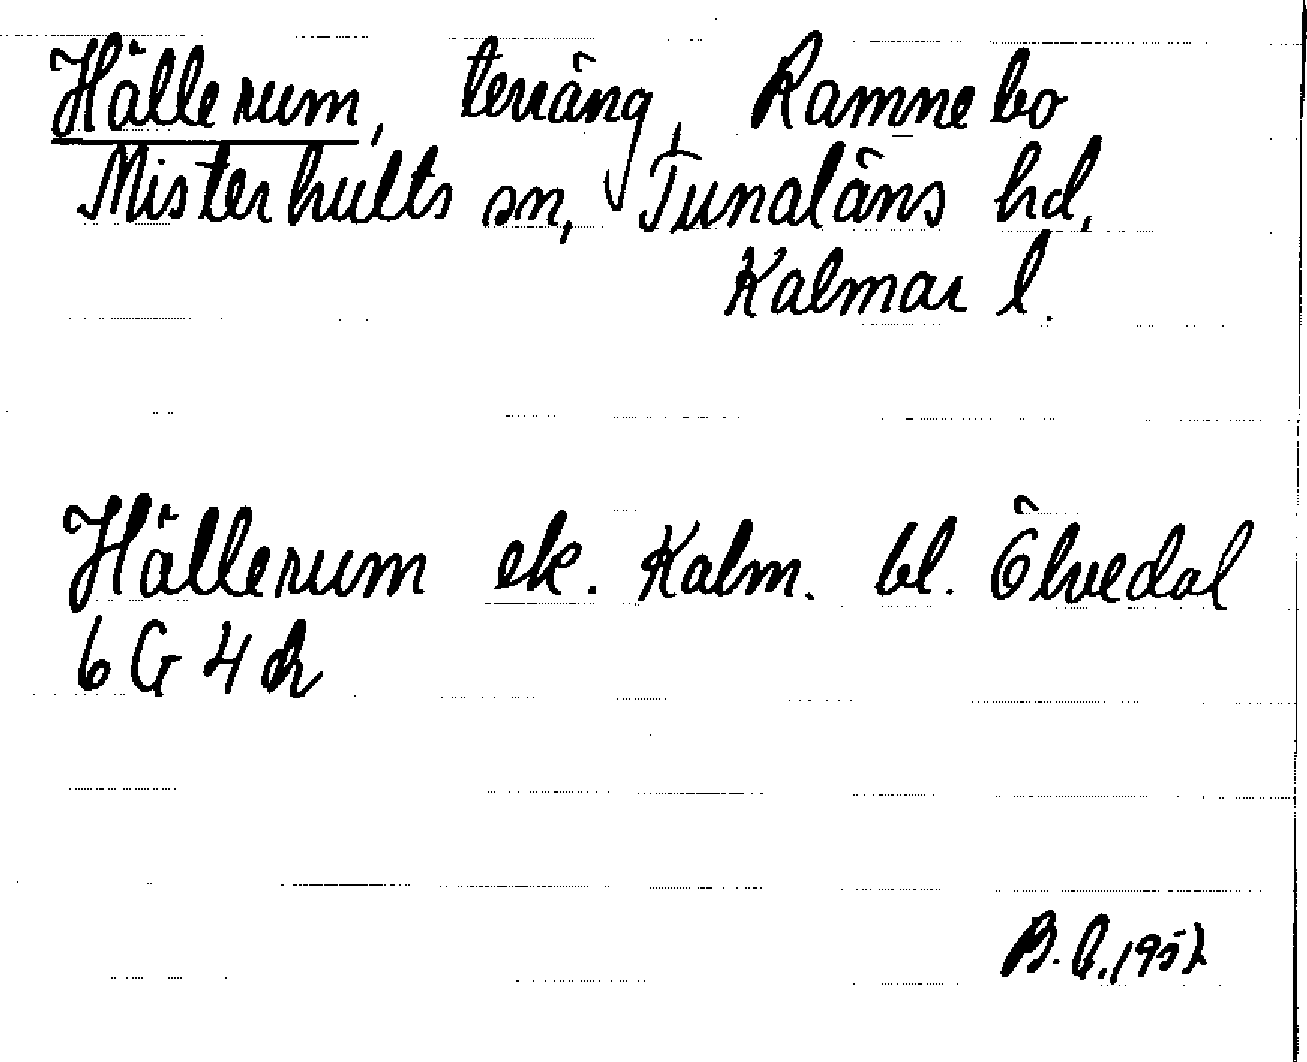 Hällerum, terräng, Ramnebo
Misterhults sn, Tunaläns hd,
Kalmar l.
Hällerum ek. Kalm. bl. Ölvedal
6 G 4 h
B. G. 1952